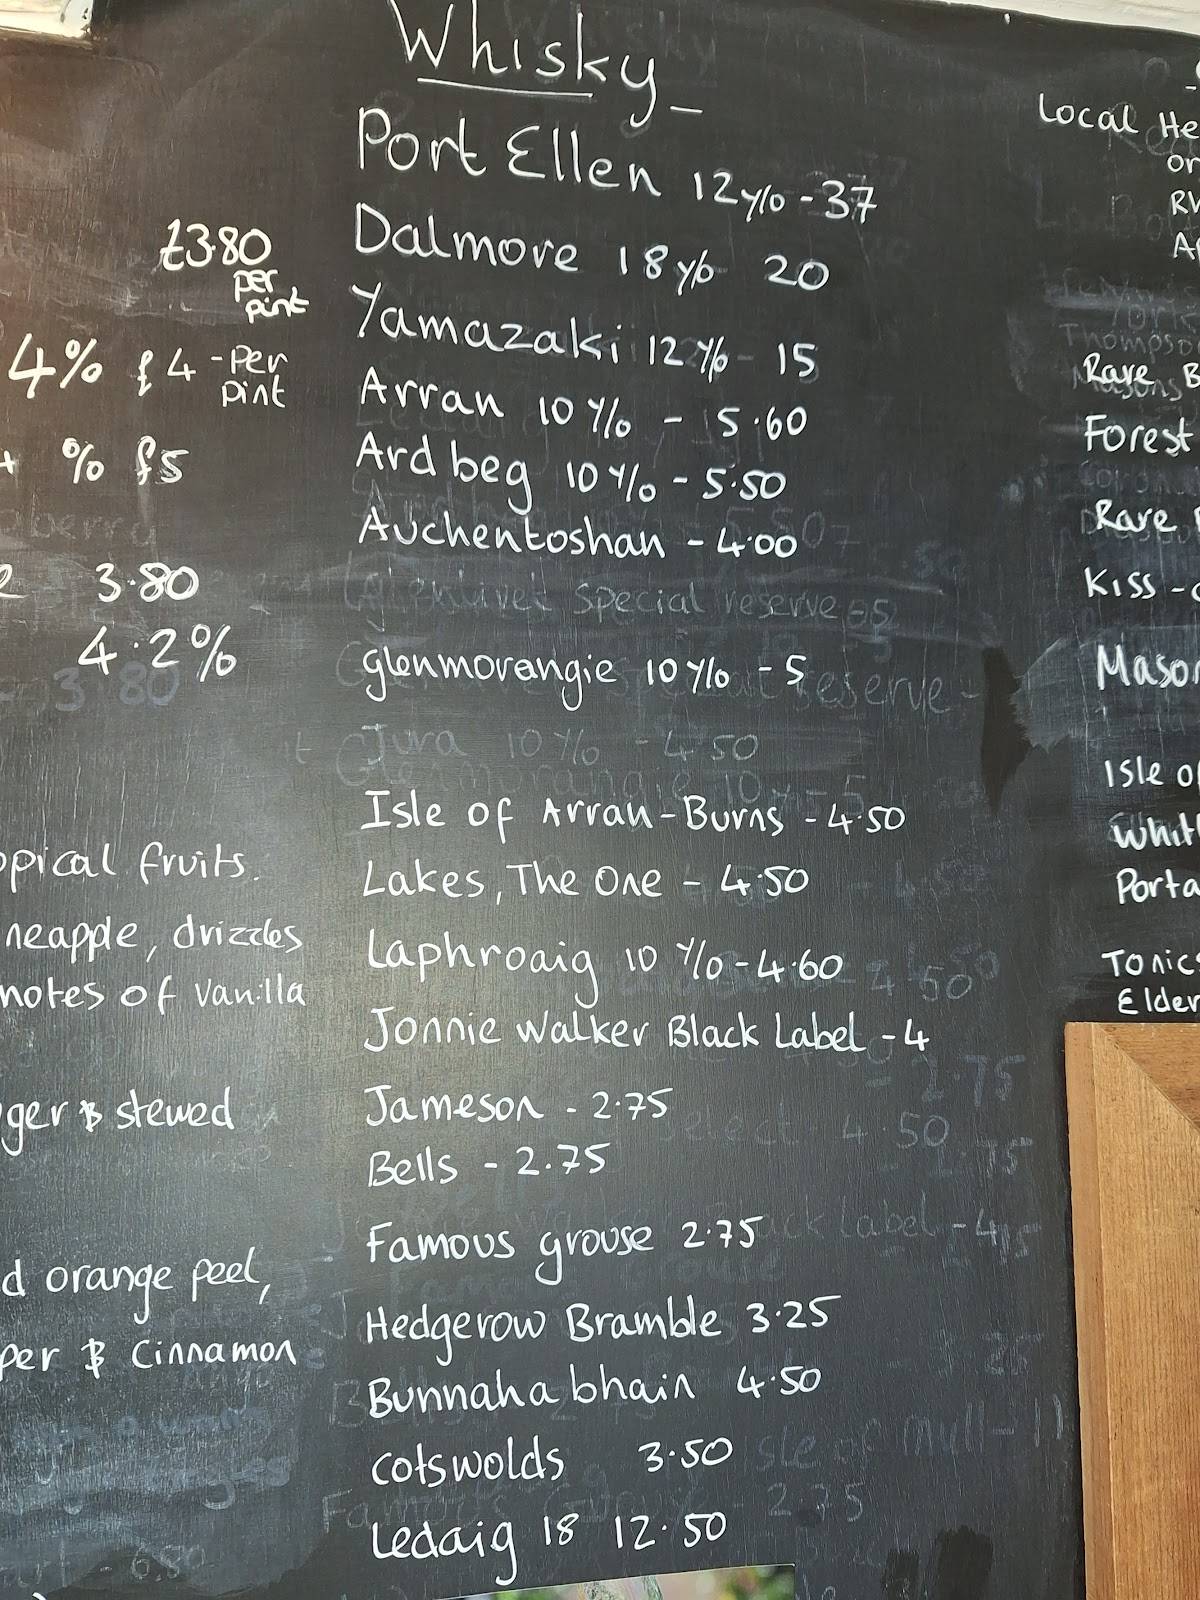 Whisky
Port Ellen 12 y/o - 37
Dalmore 18 y/o 20
Yamazaki 12 y/o - 15
Arran 10 y/o - 5.60
Ardbeg 10 y/o - 5.50
Auchentoshan - 4.00
Glenlivet special reserve - 5
glenmorangie 10 y/o - 5
Jura 10 y/o - 4.50
Isle of Arran - Burns - 4.50
Lakes, The One - 4.50
Laphroaig 10 y/o - 4.60
Jonnie Walker Black Label - 4
Jameson - 2.75
Bells - 2.75
Famous grouse 2.75
Hedgerow Bramble 3.25
Bunnahabhain 4.50
cotswolds 3.50
Ledaig 18 12.50
£3.80
per
pint
4% £4 - Per
pint
% £5
3.80
4.2%
3.80
opical fruits.
neapple, drizzles
notes of vanilla
ger & stewed
d orange peel,
per & cinnamon
Local He
or
Rare B
Forest
Rare
Kiss -
Mason
Isle of
Whit
Porta
Tonics
Elder